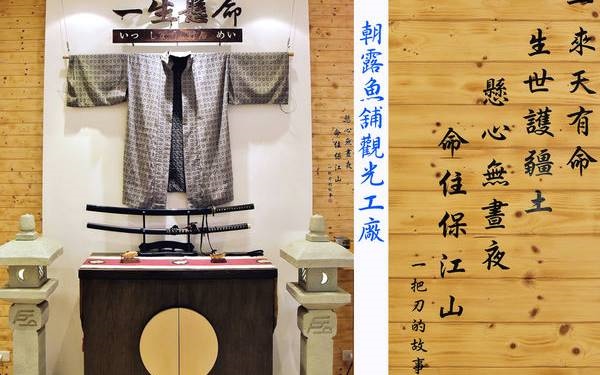 一生懸命
いっ しょう けん めい
懸心無晝夜
命住保江山
一把刀的故事
朝露魚舖觀光工廠
一來天有命
生世護疆土
懸心無晝夜
命住保江山
一把刀的故事